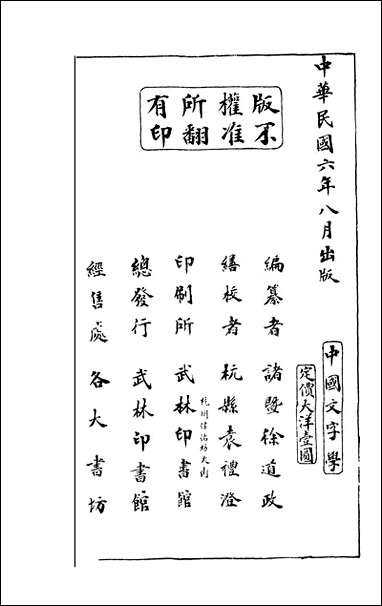 中華民國六年八月出版
中國文字學
定價大洋壹圓
版權所有
不准翻印
編纂者 諸暨徐道政
繕校者 杭縣袁禮澄
印刷所 武林印書館
總發行 武林印書館
經售處 各大書坊